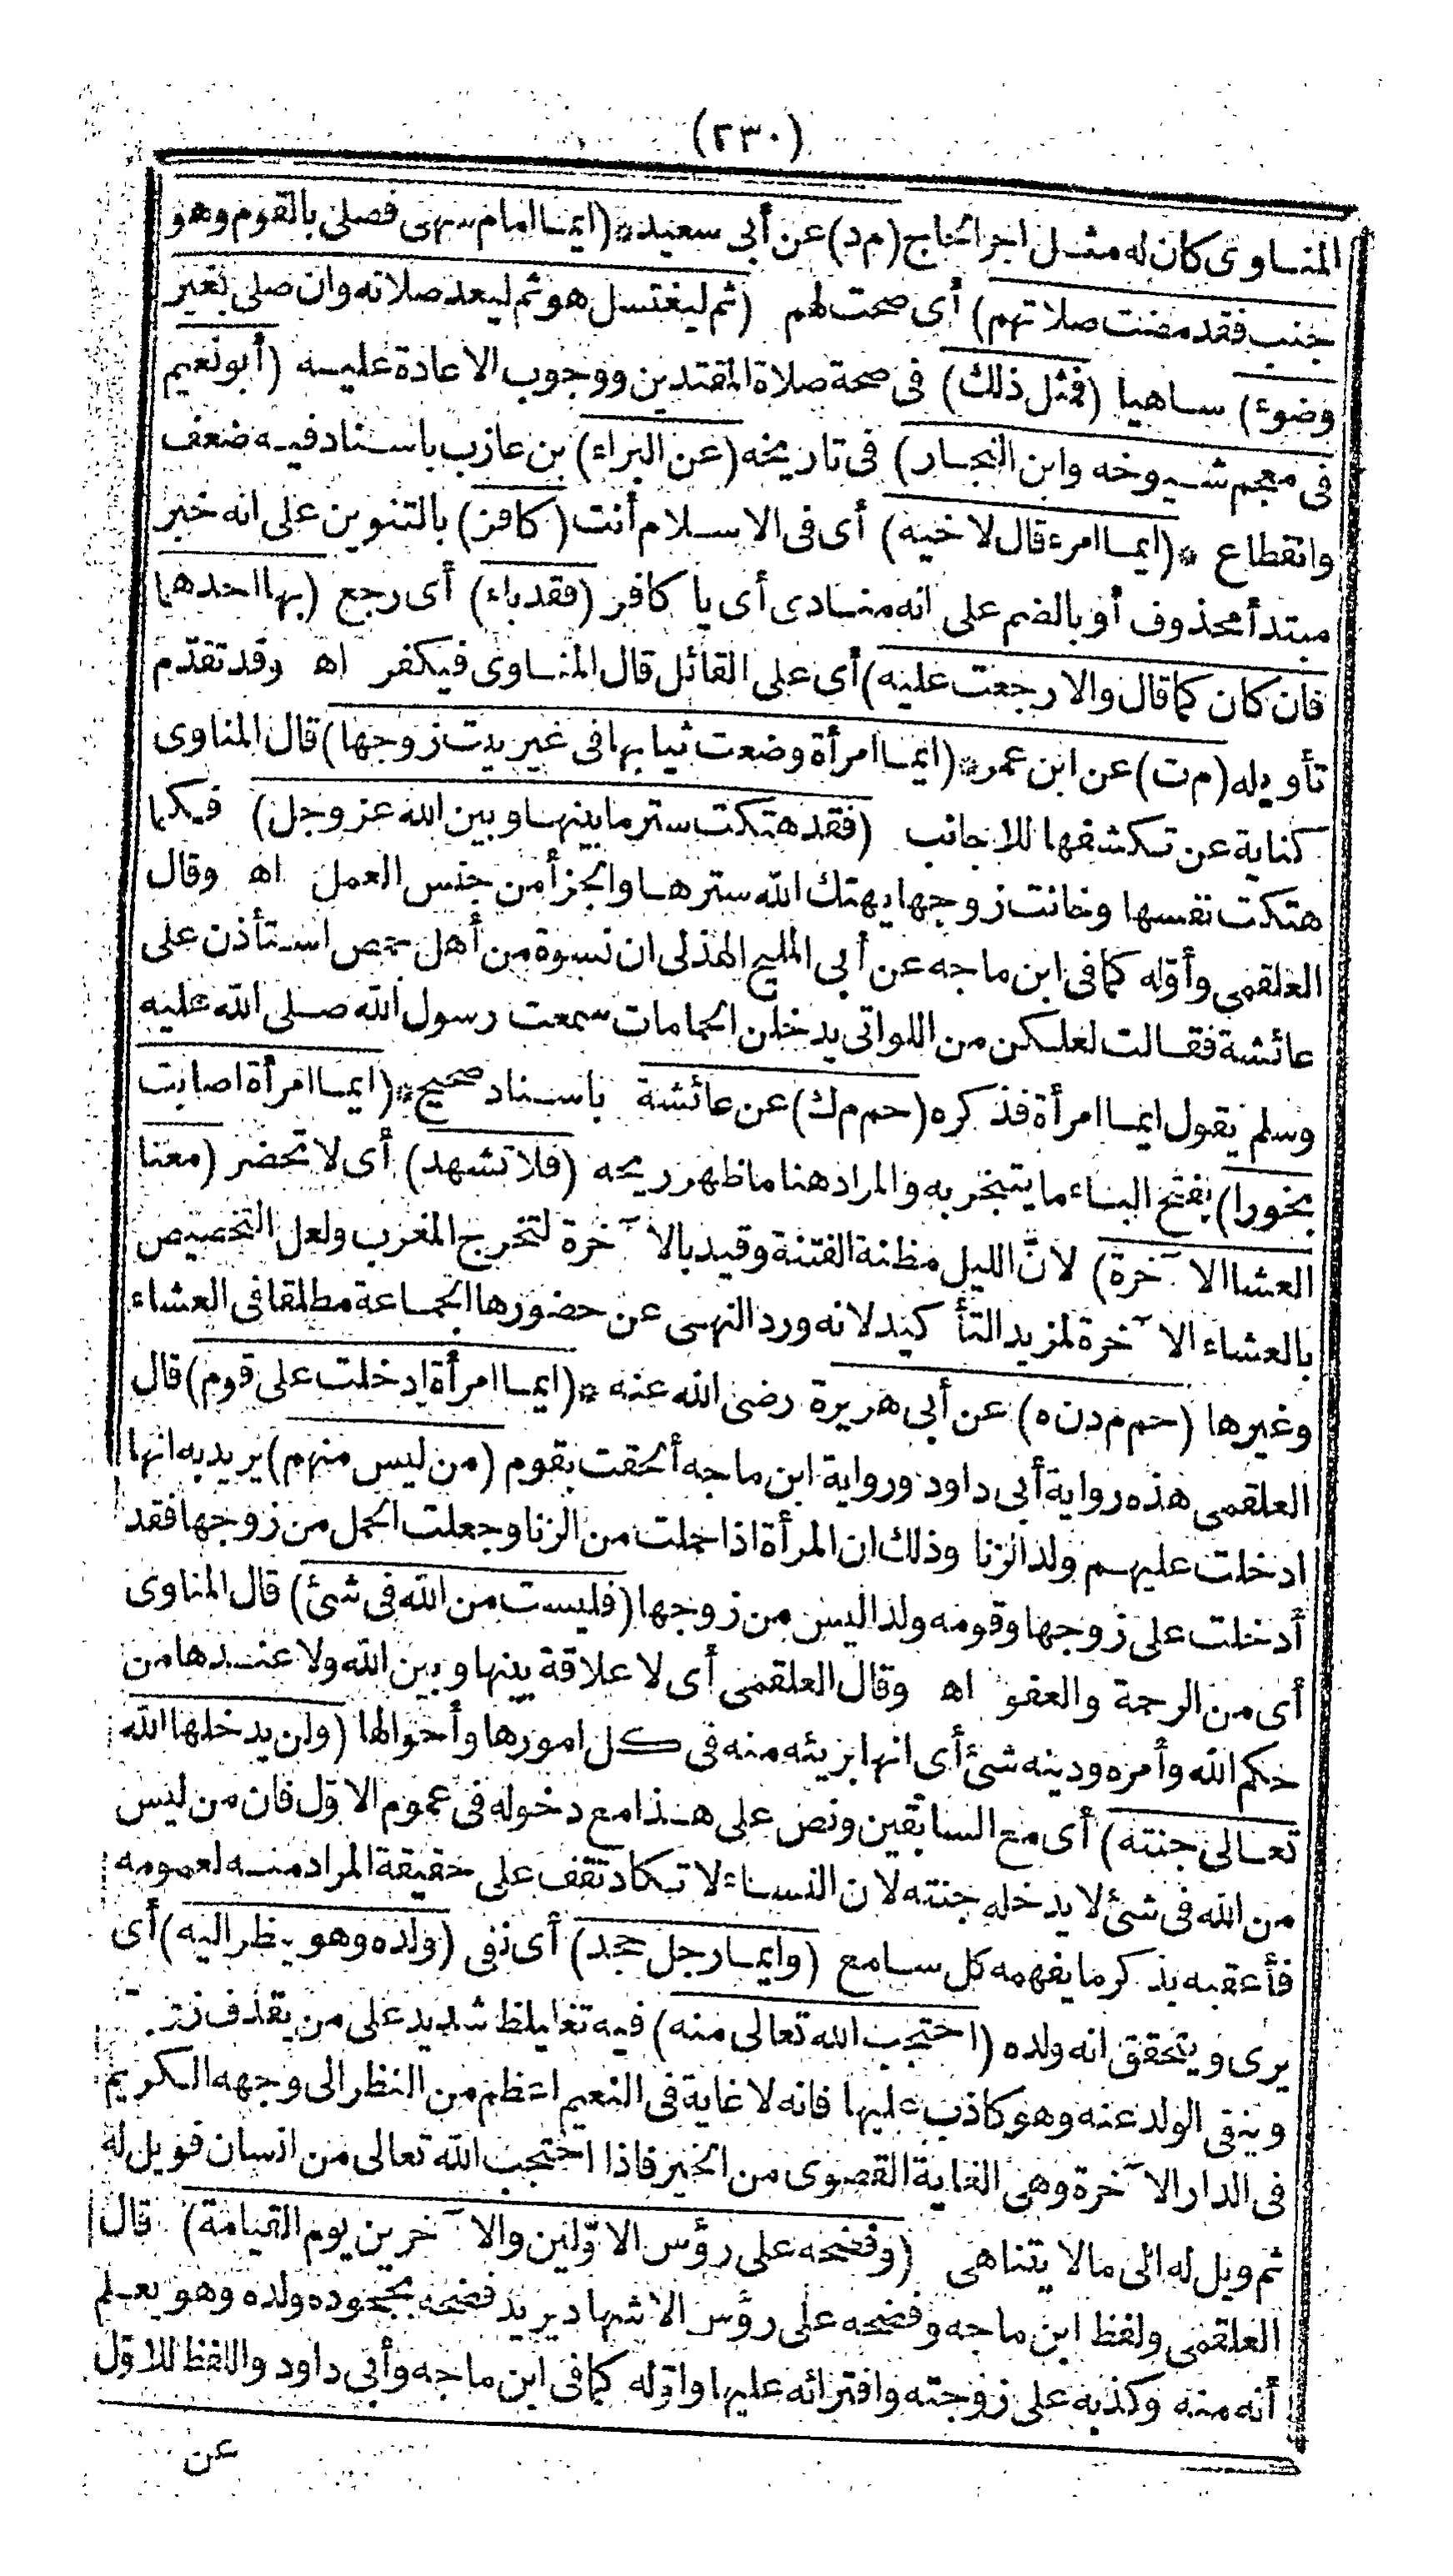 (٢٣٠)
المناوى كان له مثل اجر الحاج (م د) عن أبى سعيد * (ايما امام سهى فصلى بالقوم وهو
جنب فقد مضت صلاتهم) أى صحت لهم (ثم ليغتسل هو ثم ليعد صلاته وان صلى بغير
وضوء) ساهيا (فمثل ذلك) فى صحة صلاة المقتدين ووجوب الاعادة عليه (أبو نعيم
فى معجم شيوخه وابن النجار) فى تاريخه (عن البراء) بن عازب باسناد فيه ضعف
وانقطاع * (ايما امرء قال لاخيه) أى فى الاسلام أنت (كافر) بالتنوين على انه خبر
مبتدأ محذوف أو بالضم على انه منادى أى يا كافر (فقد باء) أى رجع (بها احدهما
فان كان كما قال والا رجعت عليه) أى على القائل قال المناوى فيكفر اه وقد تقدّم
تأويله (م ت) عن ابن عمر * (ايما امرأة وضعت ثيابها فى غير بيت زوجها) قال المناوى
كناية عن تكشفها للاجانب (فقد هتكت ستر ما بينها وبين الله عز وجل) فيكما
هتكت نفسها وخانت زوجها يهتك الله سترها والجزأ من جنس العمل اه وقال
العلقمى وأوّله كما فى ابن ماجه عن أبى المليح الهذلى ان نسوة من أهل حمص استأذن على
عائشة فقالت لعلكن من اللواتى يدخلن الحمامات سمعت رسول الله صلى الله عليه
وسلم يقول ايما امرأة فذكره (حم م ك) عن عائشة باسناد صحيح * (ايما امرأة اصابت
بخورا) بفتح الباء ما يتبخر به والمراد هنا ما ظهر ريحه (فلا تشهد) أى لا تحضر (معنا
العشا الا آخرة) لانّ الليل مظنة الفتنة وقيد بالا آخرة لتخرج المغرب ولعل التخصيص
بالعشاء الا آخرة لمزيد التأكيد لانه ورد النهى عن حضورها الجماعة مطلقا فى العشاء
وغيرها (حم م د ن ه) عن أبى هريرة رضى الله عنه * (ايما امرأة ادخلت على قوم) قال
العلقمى هذه رواية أبى داود ورواية ابن ماجه ألحقت بقوم (من ليس منهم) يريد به انها
ادخلت عليهم ولد الزنا وذلك ان المرأة اذا حملت من الزنا وجعلت الحمل من زوجها فقد
أدخلت على زوجها وقومه ولدا ليس من زوجها (فليست من الله فى شئ) قال المناوى
أى من الرحمة والعفو اه وقال العلقمى أى لا علاقة بينها وبين الله ولا عندها من
حكم الله وأمره ودينه شئ أى انها بريئه منه فى كل امورها وأحوالها (ولن يدخلها الله
تعالى جنته) أى مع السابقين ونص على هذا مع دخوله فى عموم الاوّل فان من ليس
من الله فى شئ لا يدخله جنته لان النساء لا تكاد تقف على حقيقة المراد منه لعمومه
فأعقبه بذكر ما يفهمه كل سامع (وايما رجل جحد) أى نفى (ولده وهو ينظر اليه) أى
يرى ويتحقق انه ولده (احتجب الله تعالى منه) فيه تغليظ شديد على من يقذف
وينفى الولد عنه وهو كاذب عليها فانه لا غاية فى النعيم اعظم من النظر الى وجهه الكريم
فى الدار الا آخرة وهى الغاية القصوى من الخير فاذا احتجب الله تعالى من انسان فويل له
ثم ويل له الى ما لا يتناهى (وفضحه على رؤس الاوّلين والا آخرين يوم القيامة) قال
العلقمى ولفظ ابن ماجه وفضحه على رؤس الاشهاد يريد فضحه بجحوده ولده وهو يعلم
أنه منه وكذبه على زوجته وافترائه عليها واوّله كما فى ابن ماجه وأبى داود واللفظ للاوّل
عن